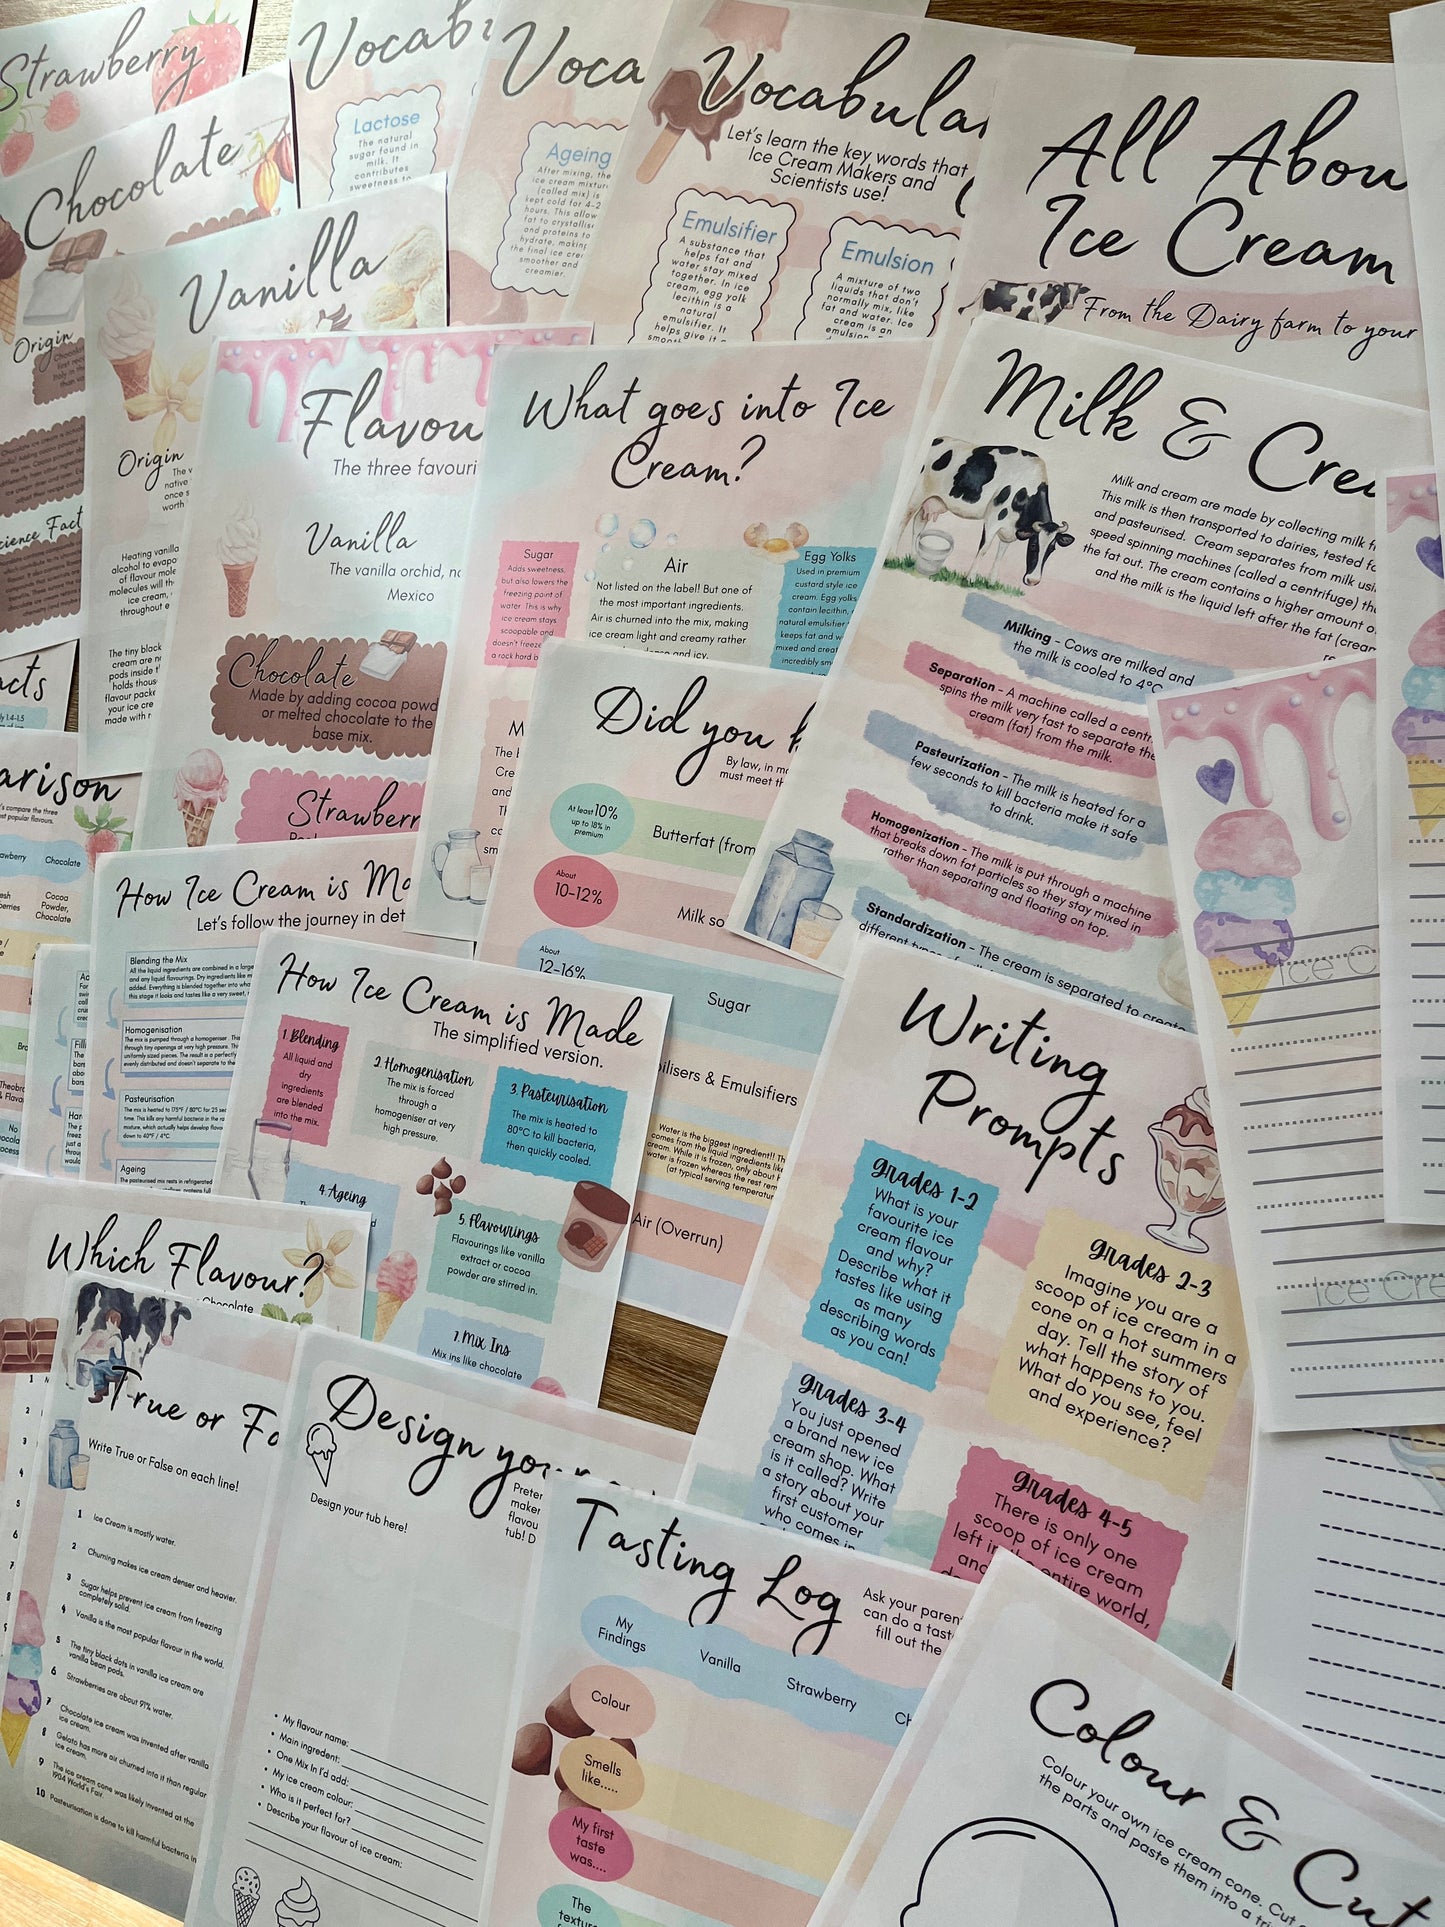 Strawberry
Chocolate
Origin
Vanilla
Origin
Heating vanilla
alcohol to evapo
of flavour mole
molecules will th
ice cream,
throughout e
The tiny black
cream are n
pods inside t
holds thous
flavour packe
your ice cre
made with r
Vocab
Lactose
The natural
sugar found in
milk. It
contributes
sweetness to
Voca
Ageing
After mixing, the
ice cream mixtur
(called mix) i
kept cold for 4-2
hours. This allow
fat to crystallis
and proteins to
hydrate, making
the final ice crea
smoother and
creamier.
Vocabular
Let's learn the key words that
Ice Cream Makers and
Scientists use!
Emulsifier
A substance that
helps fat and
water stay mixed
together. In ice
cream, egg yolk
lecithin is a
natural
emulsifier. It
helps give it a
Emulsion
A mixture of two
liquids that don't
normally mix, like
fat and water. Ice
cream is an
emulsion.
All Abou
Ice Cream
From the Dairy farm to your
Flavou
The three favouri
Vanilla
The vanilla orchid, na
Mexico
Chocolate
Made by adding cocoa powd
or melted chocolate to the
base mix.
Strawberr
What goes into Ice
Cream?
Sugar
Adds sweetness,
but also lowers the
freezing point of
water. This is why
ice cream stays
scoopable and
doesn't freeze
a rock hard b
Air
Not listed on the label! But one of
the most important ingredients.
Air is churned into the mix, making
ice cream light and creamy rather
dense and icy.
Egg Yolks
Used in premium
custard style ice
cream. Egg yolks
contain lecithin,
natural emulsifier
keeps fat and w
mixed and creat
incredibly sm
Milk & Crea
Milk and cream are made by collecting milk f
This milk is then transported to dairies, tested fo
and pasteurised. Cream separates from milk usi
speed spinning machines (called a centrifuge) th
the fat out. The cream contains a higher amount o
and the milk is the liquid left after the fat (crea
Milking - Cows are milked and
the milk is cooled to 4°C
Separation - A machine called a centr
spins the milk very fast to separate the
cream (fat) from the milk.
Pasteurization - The milk is heated for a
few seconds to kill bacteria make it safe
to drink.
Homogenization - The milk is put through a machine
that breaks down fat particles so they stay mixed in
rather than separating and floating on top.
Standardization - The cream is separated to create
Did you k
By law, in m
must meet th
At least 10%
up to 18% in
premium
Butterfat (from
About
10-12%
Milk so
About
12-16%
Sugar
ilisers & Emulsifiers
Water is the biggest ingredient!! Th
comes from the liquid ingredients like
cream. While it is frozen, only about
water is frozen whereas the rest rem
(at typical serving temperatur
Air (Overrun)
arison
's compare the three
st popular flavours.
awberry
Chocolate
Cocoa
Powder,
Chocolate
How Ice Cream is Ma
Let's follow the journey in det
Blending the Mix
All the liquid ingredients are combined in a large
and any liquid flavourings. Dry ingredients like m
added. Everything is blended together into wha
this stage it looks and tastes like a very sweet,
Homogenisation
The mix is pumped through a homogeniser. This
through tiny openings at very high pressure. Thi
uniformly sized pieces. The result is a perfectly
evenly distributed and doesn't separate to the
Pasteurisation
The mix is heated to 175°F / 80°C for 25 sec
time. This kills any harmful bacteria in the ra
mixture, which actually helps develop flavo
down to 40°F / 4°C.
Ageing
The pasteurised mix rests in refrigerated
How Ice Cream is Made
The simplified version.
1. Blending
All liquid and
dry
ingredients
are blended
into the mix.
2. Homogenisation
The mix is forced
through a
homogeniser at very
high pressure.
3. Pasteurisation
The mix is heated to
80°C to kill bacteria,
then quickly cooled.
4. Ageing
5. Flavourings
Flavourings like vanilla
extract or cocoa
powder are stirred in.
7. Mix Ins
Mix ins like chocolate
Writing
Prompts
Grades 1-2
What is your
favourite ice
cream flavour
and why?
Describe what it
tastes like using
as many
describing words
as you can!
Grades 2-3
Imagine you are a
scoop of ice cream in a
cone on a hot summers
day. Tell the story of
what happens to you.
What do you see, feel
and experience?
Grades 3-4
You just opened
a brand new ice
cream shop. What
is it called? Write
a story about your
first customer
who comes in
Grades 4-5
There is only one
scoop of ice cream
left in the entire world,
and
Ice C
Ice Cre
Which Flavour?
Chocolate
True or Fa
Write True or False on each line!
1 Ice Cream is mostly water.
2 Churning makes ice cream denser and heavier.
3 Sugar helps prevent ice cream from freezing
completely solid.
4 Vanilla is the most popular flavour in the world.
5 The tiny black dots in vanilla ice cream are
vanilla bean pods.
6 Strawberries are about 91% water.
7 Chocolate ice cream was invented after vanilla
ice cream.
8 Gelato has more air churned into it than regular
ice cream.
9 The ice cream cone was likely invented at the
1904 World's Fair.
10 Pasteurisation is done to kill harmful bacteria in
Design you
Design your tub here!
Preten
maker
flavou
tub! D
• My flavour name:
• Main ingredient:
• One Mix In I'd add:
• My ice cream colour:
• Who is it perfect for?
• Describe your flavour of ice cream:
Tasting Log
Ask your paren
can do a tast
fill out the
My
Findings
Vanilla
Strawberry
Ch
Colour
Smells
like.....
My first
taste
was....
The
texture
Colour & Cut
Colour your own ice cream cone. Cut
the parts and paste them into a tri